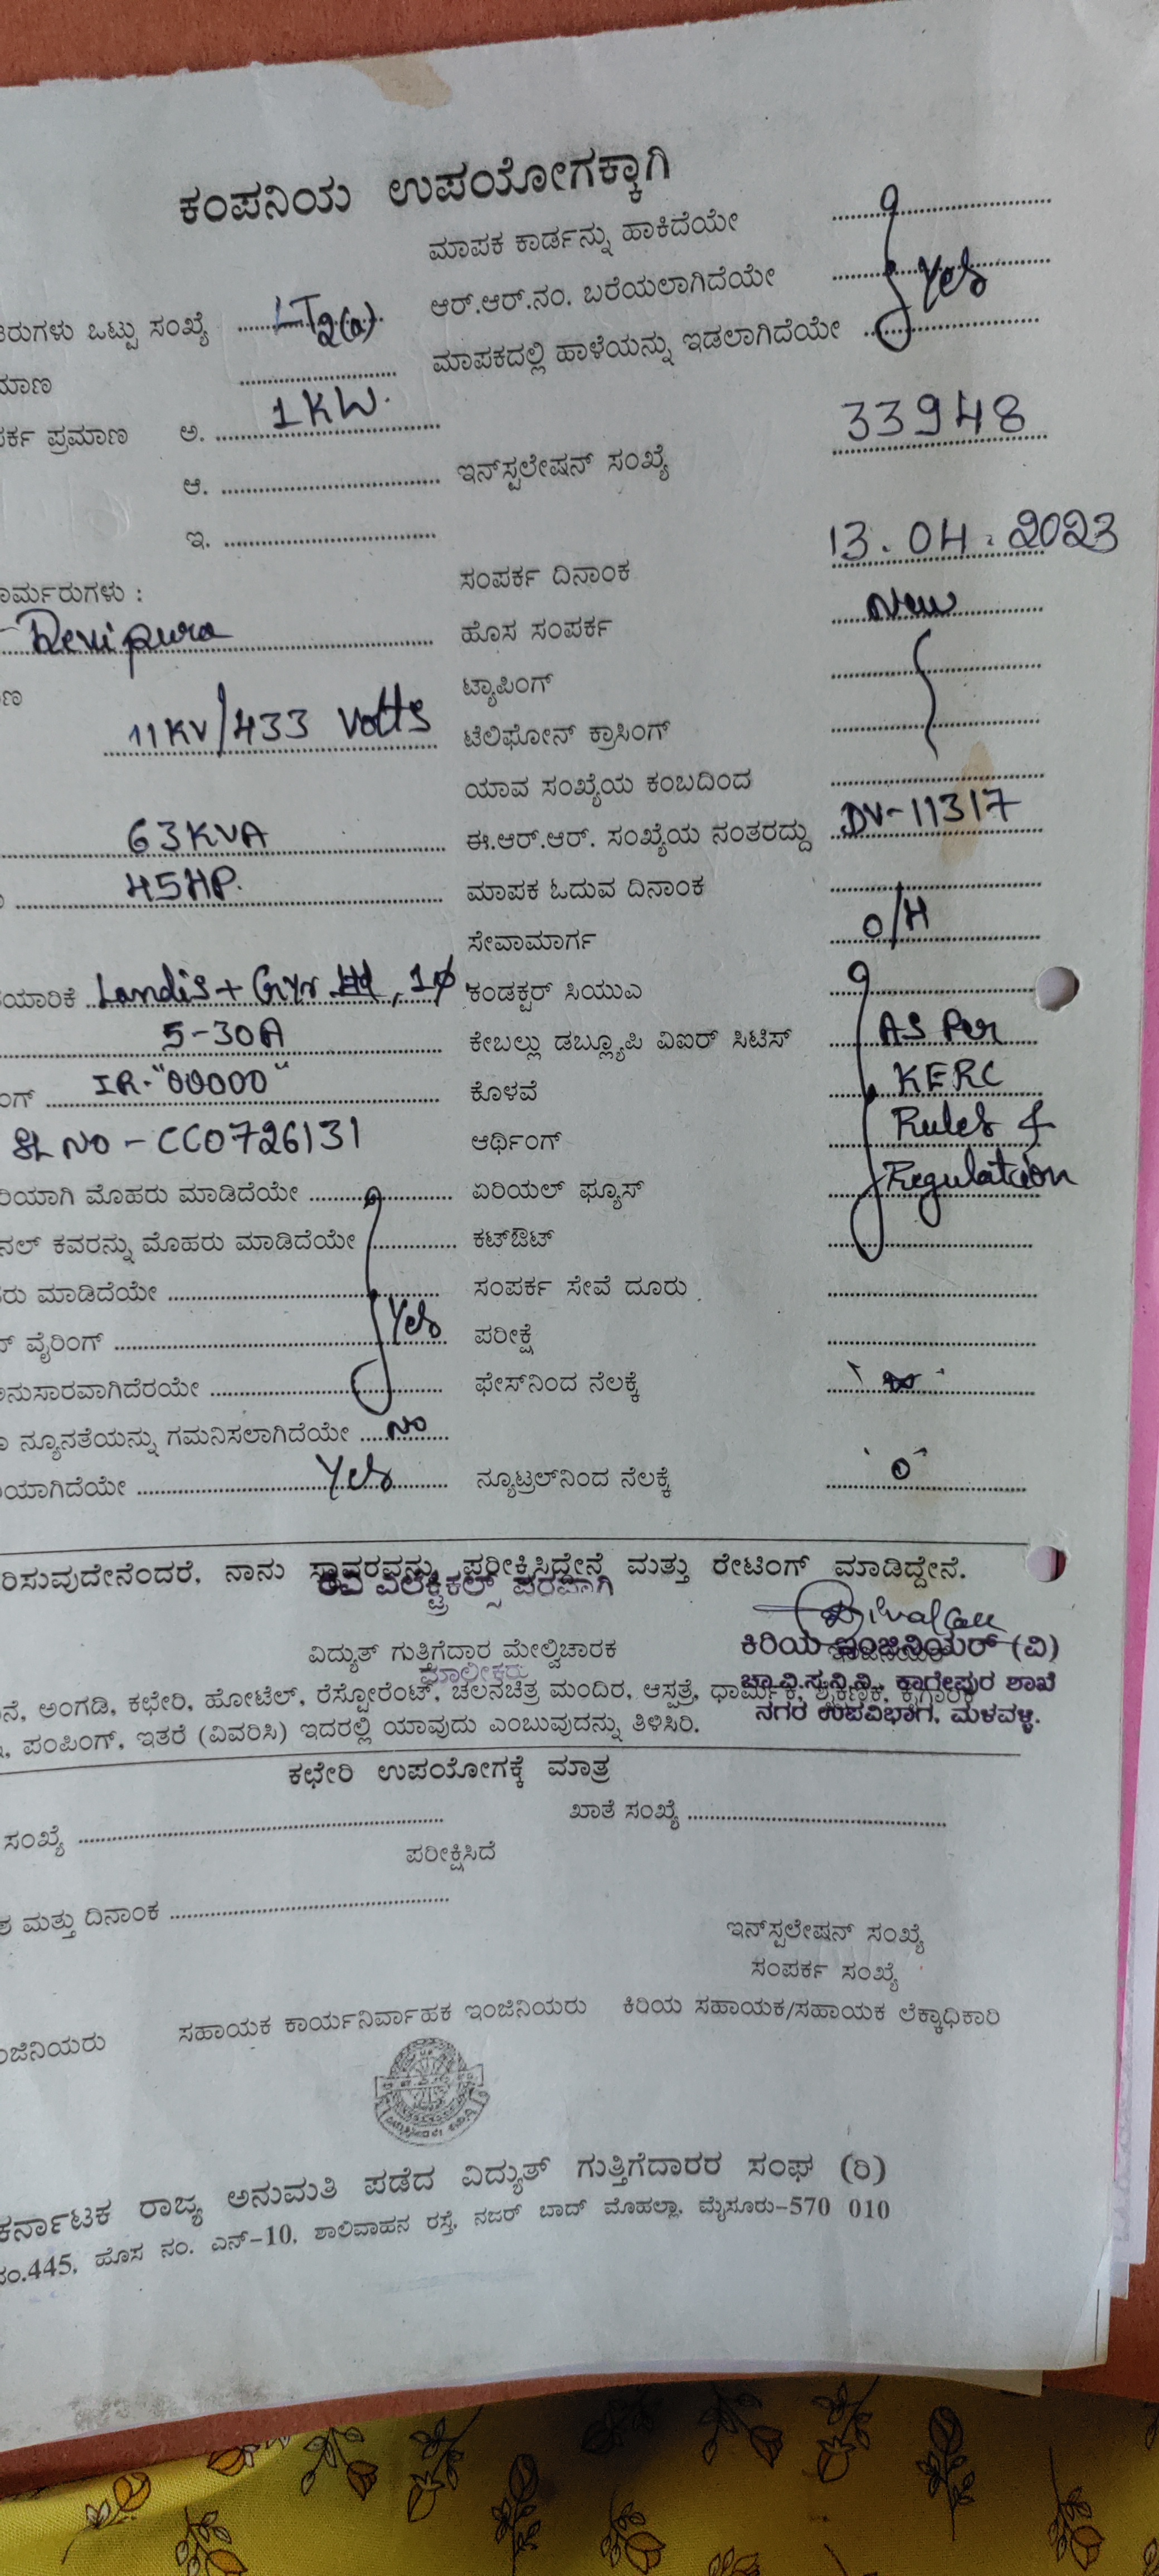 ಕಂಪನಿಯ ಉಪಯೋಗಕ್ಕಾಗಿ
ಮಾಪಕ ಕಾರ್ಡನ್ನು ಹಾಕಿದೆಯೇ
ರುಗಳು ಒಟ್ಟು ಸಂಖ್ಯೆ LT2(a) ಆರ್.ಆರ್.ನಂ. ಬರೆಯಲಾಗಿದೆಯೇ Yes
ಮಾಣ ಮಾಪಕದಲ್ಲಿ ಹಾಳೆಯನ್ನು ಇಡಲಾಗಿದೆಯೇ
ರ್ಕ ಪ್ರಮಾಣ ಅ. 1KW.
ಆ. ಇನ್‌ಸ್ಟಲೇಷನ್ ಸಂಖ್ಯೆ 33948
ಇ.
ರ್ಮರುಗಳು : ಸಂಪರ್ಕ ದಿನಾಂಕ 13.04.2023
Devipura ಹೊಸ ಸಂಪರ್ಕ New
ಣ ಟ್ಯಾಪಿಂಗ್
11KV/433 Volts ಟೆಲಿಫೋನ್ ಕ್ರಾಸಿಂಗ್
ಯಾವ ಸಂಖ್ಯೆಯ ಕಂಬದಿಂದ
63KVA ಈ.ಆರ್.ಆರ್. ಸಂಖ್ಯೆಯ ನಂತರದ್ದು DV-11317
45HP. ಮಾಪಕ ಓದುವ ದಿನಾಂಕ
ಸೇವಾಮಾರ್ಗ O/H
ಯಾರಿಕೆ Landis+Gyr , 1ϕ ಕಂಡಕ್ಟರ್ ಸಿಯುಎ
5-30A ಕೇಬಲ್ಲು ಡಬ್ಲ್ಯೂಪಿ ವಿಐರ್ ಸಿಟಿಸ್ AS Per
ಂಗ್ IR-"00000" ಕೊಳವೆ KERC
SL NO - CC0726131 ಆರ್ಥಿಂಗ್ Rules &
ರಿಯಾಗಿ ಮೊಹರು ಮಾಡಿದೆಯೇ ಏರಿಯಲ್ ಫ್ಯೂಸ್ Regulation
ನಲ್ ಕವರನ್ನು ಮೊಹರು ಮಾಡಿದೆಯೇ ಕಟ್‌ಔಟ್
ರು ಮಾಡಿದೆಯೇ ಸಂಪರ್ಕ ಸೇವೆ ದೂರು
ವೈರಿಂಗ್ Yes ಪರೀಕ್ಷೆ
ನುಸಾರವಾಗಿದೆರಯೇ ಫೇಸ್‌ನಿಂದ ನೆಲಕ್ಕೆ
ನ್ಯೂನತೆಯನ್ನು ಗಮನಿಸಲಾಗಿದೆಯೇ No
ಯಾಗಿದೆಯೇ Yes ನ್ಯೂಟ್ರಲ್‌ನಿಂದ ನೆಲಕ್ಕೆ 0
ರಿಸುವುದೇನೆಂದರೆ, ನಾನು ಸ್ಥಾವರವನ್ನು ಪರೀಕ್ಷಿಸಿದ್ದೇನೆ ಮತ್ತು ರೇಟಿಂಗ್ ಮಾಡಿದ್ದೇನೆ.
ರವಿ ಎಲೆಕ್ಟ್ರಿಕಲ್ಸ್ ಪರವಾಗಿ
ವಿದ್ಯುತ್ ಗುತ್ತಿಗೆದಾರ ಮೇಲ್ವಿಚಾರಕ ಕಿರಿಯ ಇಂಜಿನಿಯರ್ (ವಿ)
ಮಾಲೀಕರು
ನೆ, ಅಂಗಡಿ, ಕಛೇರಿ, ಹೋಟೆಲ್, ರೆಸ್ಟೋರೆಂಟ್, ಚಲನಚಿತ್ರ ಮಂದಿರ, ಆಸ್ಪತ್ರೆ, ಧಾರ್ಮಿಕ, ಶೈಕ್ಷಣಿಕ, ಕೈಗಾರಿಕೆ
ಚಾ.ವಿ.ಸ.ನಿ.ನಿ., ಕಾಗೇಪುರ ಶಾಖೆ
, ಪಂಪಿಂಗ್, ಇತರೆ (ವಿವರಿಸಿ) ಇದರಲ್ಲಿ ಯಾವುದು ಎಂಬುವುದನ್ನು ತಿಳಿಸಿರಿ.
ನಗರ ಉಪವಿಭಾಗ, ಮಳವಳ್ಳಿ.
ಕಛೇರಿ ಉಪಯೋಗಕ್ಕೆ ಮಾತ್ರ
ಸಂಖ್ಯೆ ಖಾತೆ ಸಂಖ್ಯೆ
ಪರೀಕ್ಷಿಸಿದೆ
ಮತ್ತು ದಿನಾಂಕ
ಇನ್‌ಸ್ಪಲೇಷನ್ ಸಂಖ್ಯೆ
ಸಂಪರ್ಕ ಸಂಖ್ಯೆ
ಂಜಿನಿಯರು ಸಹಾಯಕ ಕಾರ್ಯನಿರ್ವಾಹಕ ಇಂಜಿನಿಯರು ಕಿರಿಯ ಸಹಾಯಕ/ಸಹಾಯಕ ಲೆಕ್ಕಾಧಿಕಾರಿ
ಕರ್ನಾಟಕ ರಾಜ್ಯ ಅನುಮತಿ ಪಡೆದ ವಿದ್ಯುತ್ ಗುತ್ತಿಗೆದಾರರ ಸಂಘ (ರಿ)
ನಂ.445, ಹೊಸ ನಂ. ಎನ್-10, ಶಾಲಿವಾಹನ ರಸ್ತೆ, ನಜರ್ ಬಾದ್ ಮೊಹಲ್ಲಾ, ಮೈಸೂರು-570 010